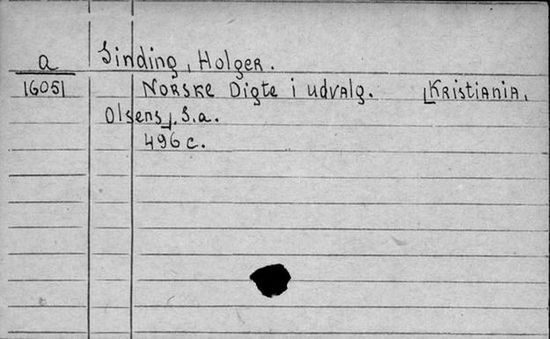 a Sinding, Holger.
16051 Norske Digte i udvalg. [Kristiania,
Olsens], S.a.
496 c.